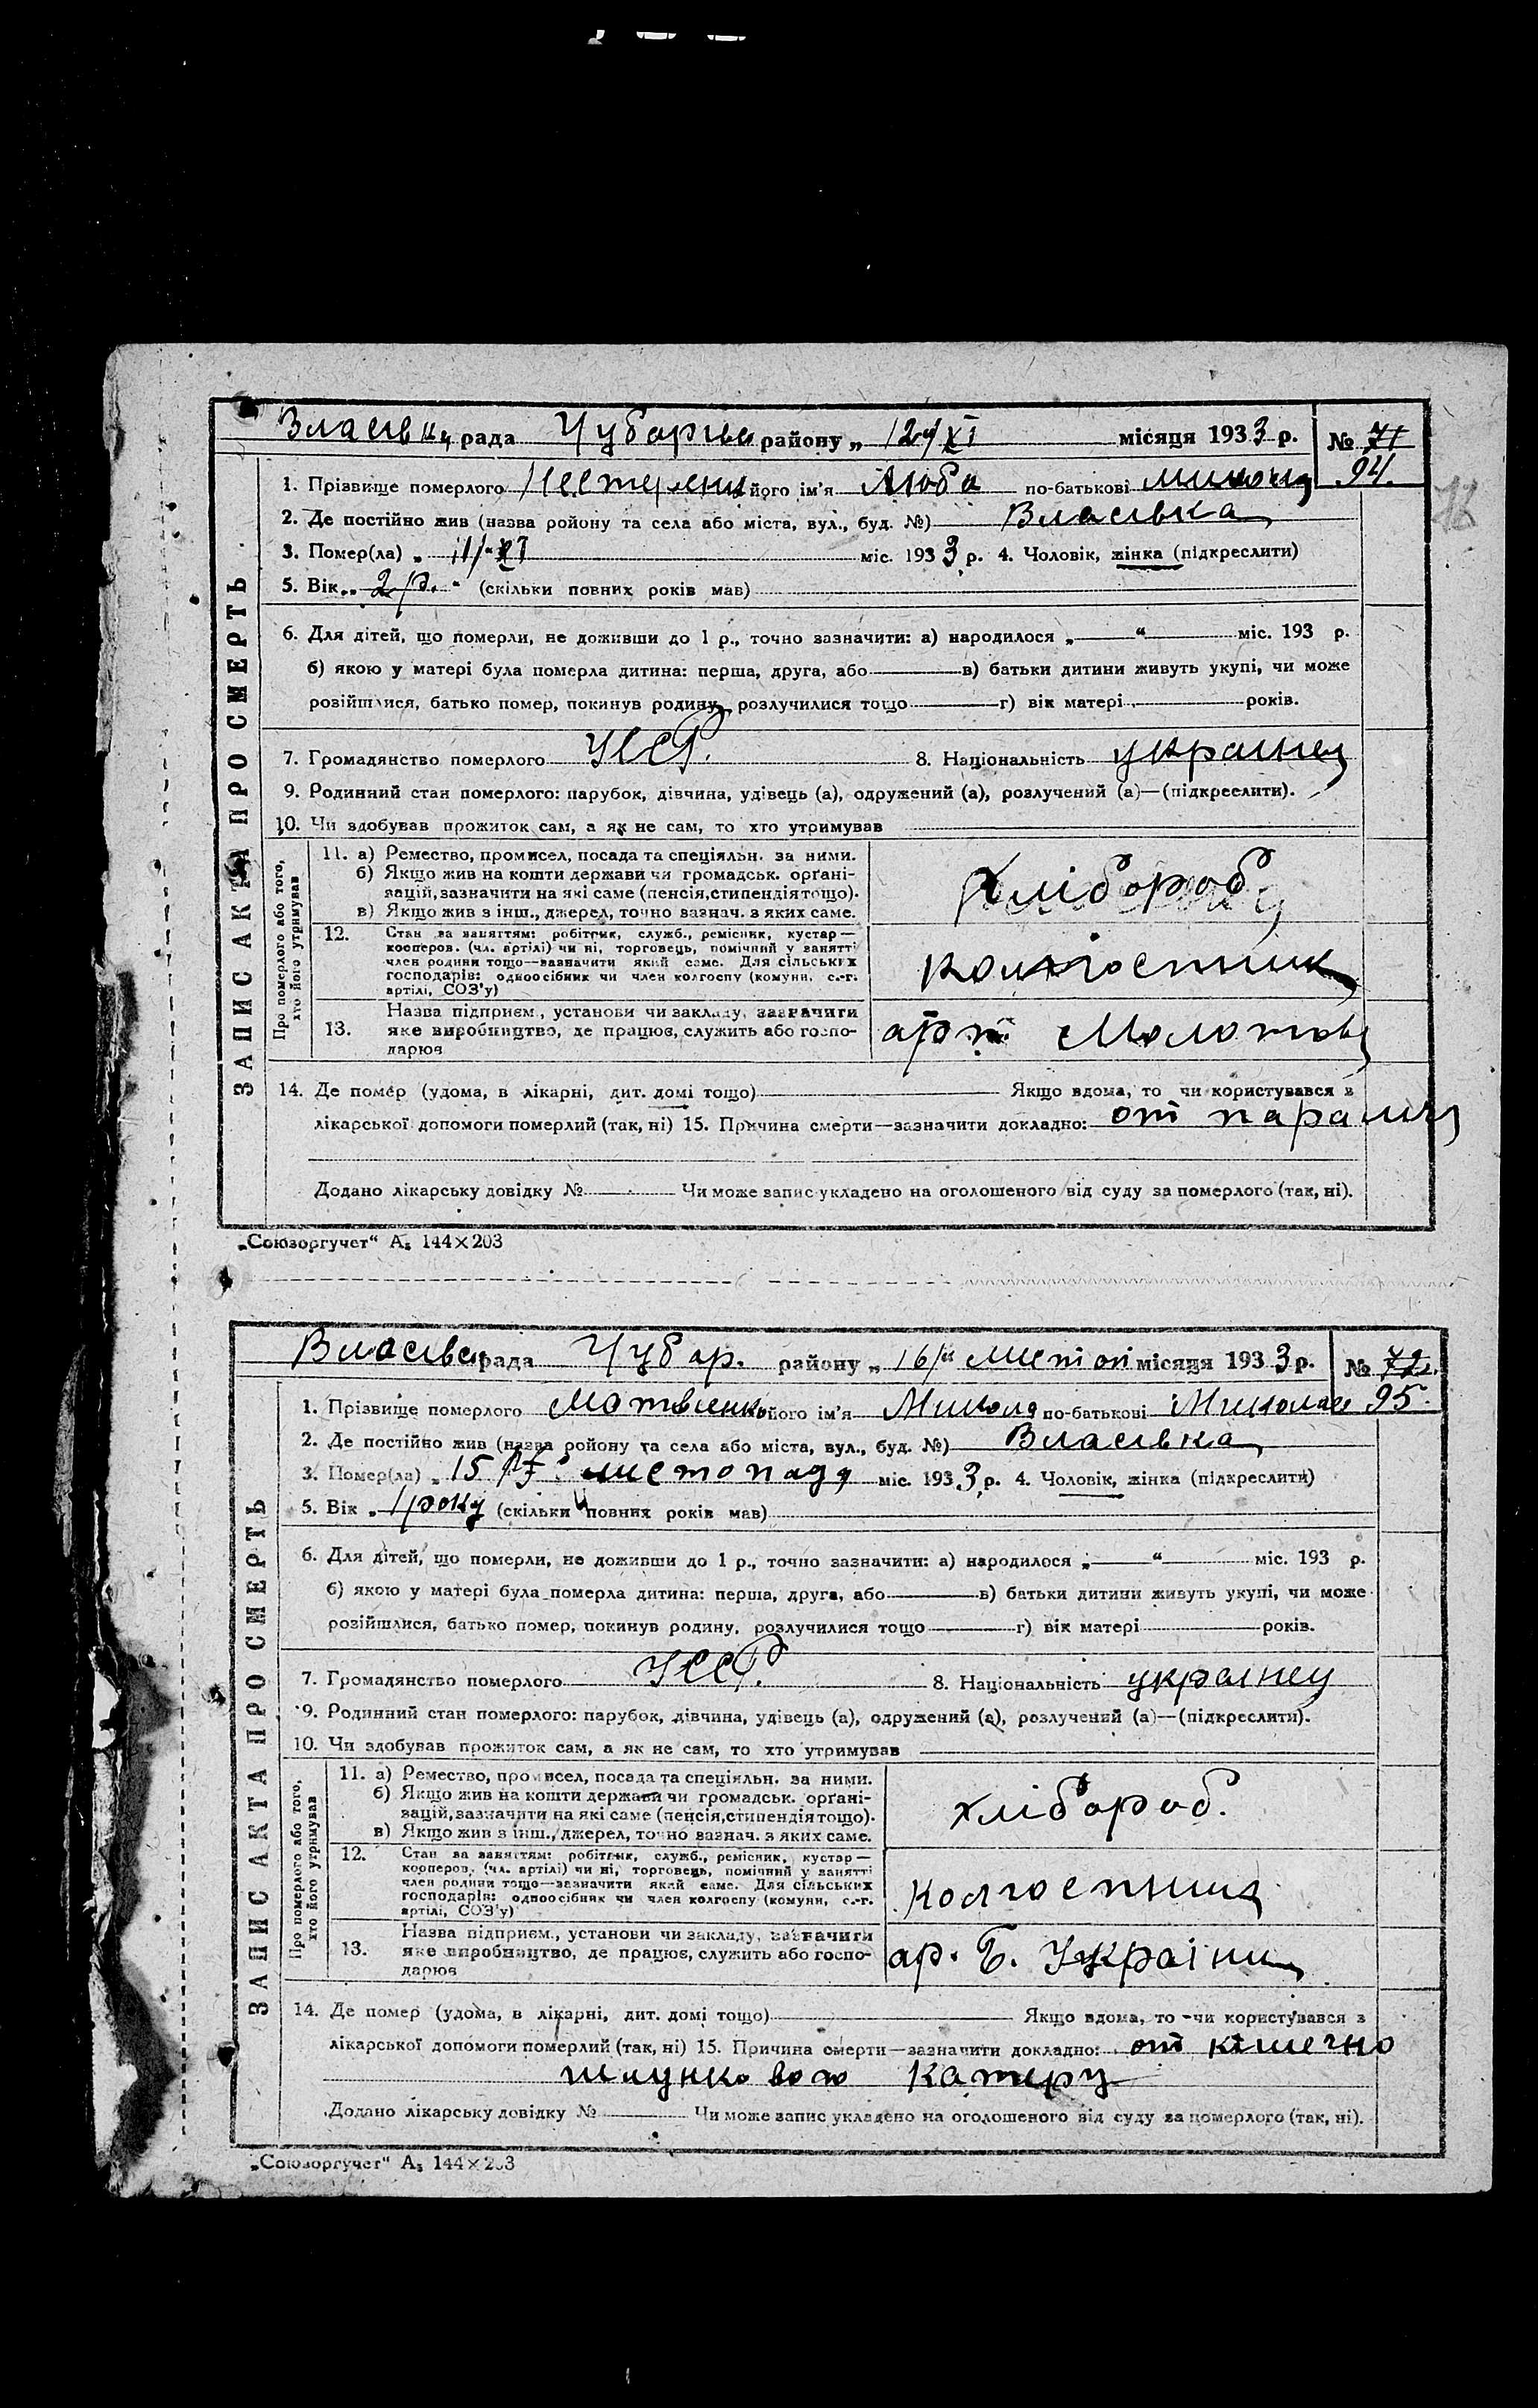 Власівка рада Чубарівс району „ 12/XI місяця 1933 р. № 71
94.
1. Прізвище померлого Нестеренко його ім'я Люба по-батькові Микола
2. Де постійно жив (назва ройону та села або міста, вул., буд. №) Власівка
3. Помер(ла) „ 11/XI міс. 1933 р. 4. Чоловік, жінка (підкреслити)
5. Вік „ 2 р. “ (скільки повних років мав)
6. Для дітей, що померли, не доживши до 1 р., точно зазначити: а) народилося „ “ міс. 193 р.
б) якою у матері була померла дитина: перша, друга, або в) батьки дитини живуть укупі, чи може
розійшлися, батько помер, покинув родину, розлучилися тощо г) вік матері років.
7. Громадянство померлого УССР. 8. Національність украинец
9. Родинний стан померлого: парубок, дівчина, удівець (а), одружений (а), розлучений (а)—(підкреслити).
10. Чи здобував прожиток сам, а як не сам, то хто утримував
ЗАПИС АКТА ПРО СМЕРТЬ
Про померлого або того, хто його утримував
11. а) Ремество, промисел, посада та спеціяльн. за ними.
б) Якщо жив на кошти держави чи громадськ. орґані-
зацій, зазначити на які саме (пенсія, стипендія тощо).
в) Якщо жив з інш., джерел, точно вазнач. з яких саме.
хлібороб
12. Стан за заняттям: робітник, служб., ремісник, кустар—
кооперов. (чл. артілі) чи ні, торговець, помічний у занятті
член родини тощо—зазначити який саме. Для сільських
господарів: одноосібник чи член колгоспу (комуни, с.-г.
артілі, СОЗ'у)
колгоспник
13. Назва підприєм., установи чи закладу, зазначити
яке виробництво, де працює, служить або госпо-
дарює
арт. Молотова
14. Де помер (удома, в лікарні, дит. домі тощо) Якщо вдома, то чи користувався з
лікарської допомоги померлий (так, ні) 15. Причина смерти—зазначити докладно: от
Додано лікарську довідку № Чи може запис укладено на оголошеного від суду за померлого (так, ні).
„Союзоргучет“ А₅ 144×203
Власівс рада Чубар. району „ 16/“ листоп місяця 1933 р. № 72.
95.
1. Прізвище померлого Матвіенко його ім'я Микола по-батькові Миколае
2. Де постійно жив (назва ройону та села або міста, вул., буд. №) Власівка
3. Помер(ла) „ 15 листопада міс. 1933 р. 4. Чоловік, жінка (підкреслити)
5. Вік „ 1 року (скільки повних років мав)
6. Для дітей, що померли, не доживши до 1 р., точно зазначити: а) народилося „ “ міс. 193 р.
б) якою у матері була померла дитина: перша, друга, або в) батьки дитини живуть укупі, чи може
розійшлися, батько помер, покинув родину, розлучилися тощо г) вік матері років.
7. Громадянство померлого УССР. 8. Національність украінец
9. Родинний стан померлого: парубок, дівчина, удівець (а), одружений (а), розлучений (а)—(підкреслити).
10. Чи здобував прожиток сам, а як не сам, то хто утримував
ЗАПИС АКТА ПРО СМЕРТЬ
Про померлого або того, хто його утримував
11. а) Ремество, промисел, посада та спеціяльн. за ними.
б) Якщо жив на кошти держави чи громадськ. орґані-
зацій, зазначити на які саме (пенсія, стипендія тощо).
в) Якщо жив з інш., джерел, точно вазнач. з яких саме.
хлібороб.
12. Стан за заняттям: робітник, служб., ремісник, кустар—
кооперов. (чл. артілі) чи ні, торговець, помічний у занятті
член родини тощо—зазначити який саме. Для сільських
господарів: одноосібник чи член колгоспу (комуни, с.-г.
артілі, СОЗ'у)
колгоспниця
13. Назва підприєм., установи чи закладу, зазначити
яке виробництво, де працює, служить або госпо-
дарює
ар. Б. Украіни
14. Де помер (удома, в лікарні, дит. домі тощо) Якщо вдома, то чи користувався з
лікарської допомоги померлий (так, ні) 15. Причина смерти—зазначити докладно: от кішечно
шлункового Катару
Додано лікарську довідку № Чи може запис укладено на оголошеного від суду за померлого (так, ні).
„Союзоргучет“ А₅ 144×203